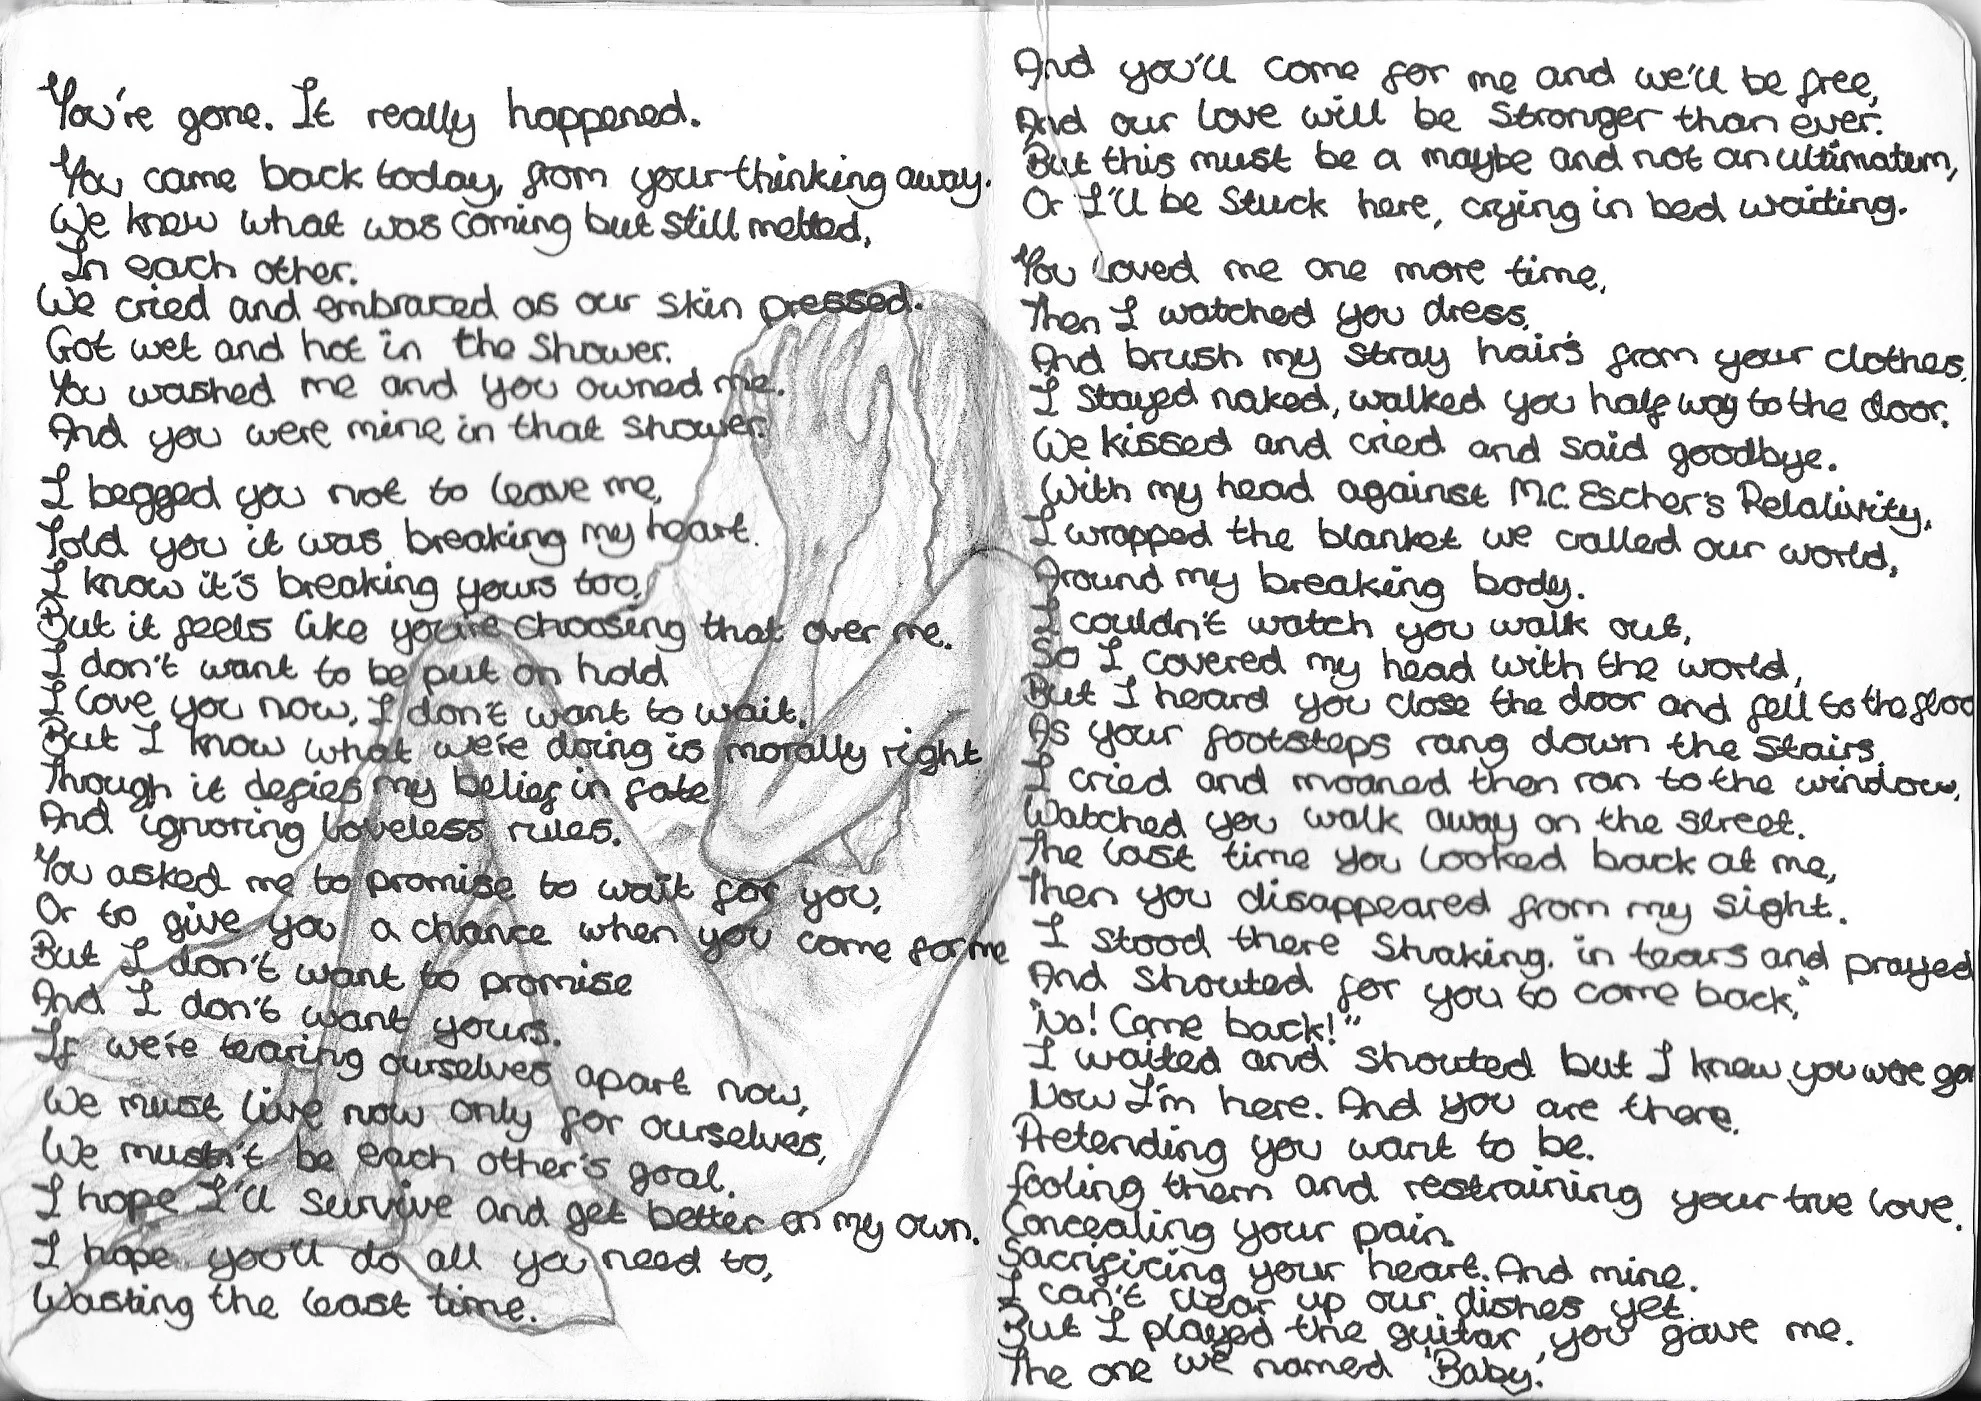 You're gone. It really happened.
You came back today, from your thinking away.
We knew what was coming but still melted,
In each other.
We cried and embraced as our skin pressed.
Got wet and hot in the shower.
You washed me and you owned me.
And you were mine in that shower.
I begged you not to leave me,
Told you it was breaking my heart.
I know it's breaking yours too,
But it feels like you're choosing that over me.
I don't want to be put on hold
I love you now, I don't want to wait.
But I know what we're doing is morally right
Though it defies my belief in fate
And ignoring loveless rules.
You asked me to promise to wait for you,
Or to give you a chance when you come for me
But I don't want to promise
And I don't want yours.
If we're tearing ourselves apart now,
We must live now only for ourselves,
We mustn't be each other's goal.
I hope I'll survive and get better on my own.
I hope you'll do all you need to,
Wasting the least time.
And you'll come for me and we'll be free,
And our love will be stronger than ever.
But this must be a maybe and not an ultimatum,
Or I'll be stuck here, crying in bed waiting.
You loved me one more time,
Then I watched you dress,
And brush my stray hairs from your clothes.
I stayed naked, walked you half way to the door.
We kissed and cried and said goodbye.
With my head against M.C. Escher's Relativity,
I wrapped the blanket we called our world,
Around my breaking body.
I couldn't watch you walk out,
So I covered my head with the world,
But I heard you close the door and fell to the floo
As your footsteps rang down the stairs.
I cried and moaned then ran to the window,
Watched you walk away on the street.
The last time you looked back at me,
Then you disappeared from my sight.
I stood there shaking. in tears and prayed
And shouted for you to come back,"
"No! Come back!"
I waited and shouted but I knew you were gon
Now I'm here. And you are there.
Pretending you want to be.
fooling them and restraining your true love.
Concealing your pain.
Sacrificing your heart. And mine.
I can't clear up our dishes yet.
But I played the guitar you gave me.
The one we named 'Baby.'